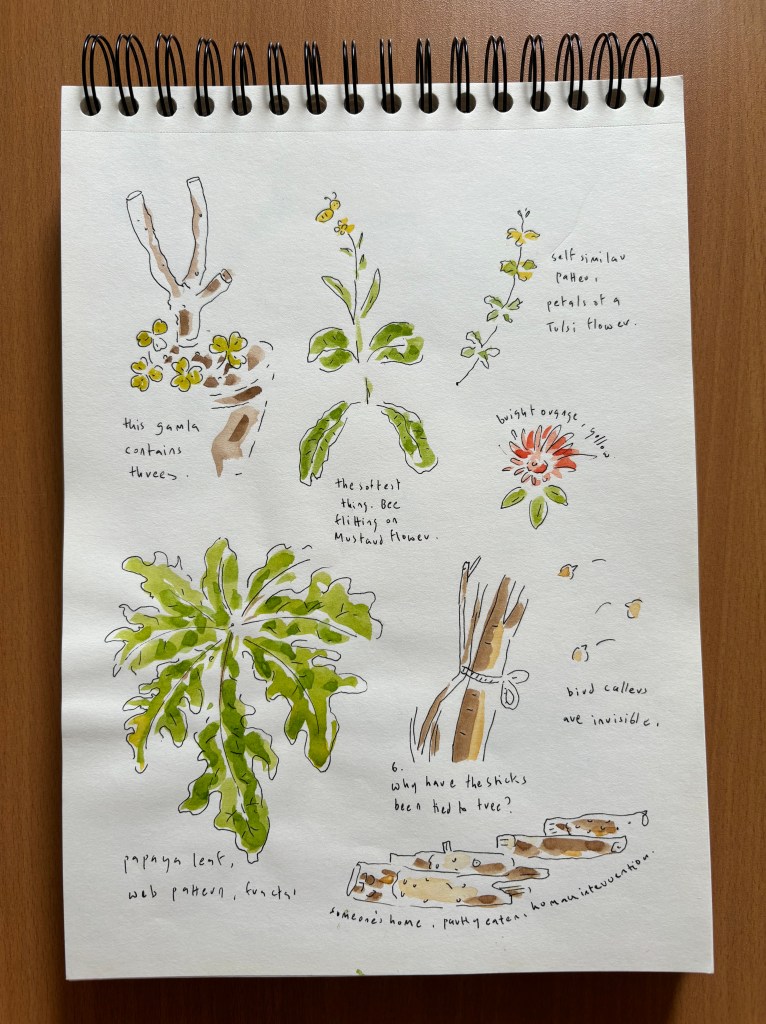 self similar
patter,
petals of a
Tulsi flower.
this gamla
contains
threes.
the softest
thing. Bee
flitting on
Mustard flower.
bright orange, yellow
bird callers
are invisible,
6.
why have the sticks
been tied to tree?
papaya leaf,
web pattern, fractal
someone's home, partly eaten, human intervention.